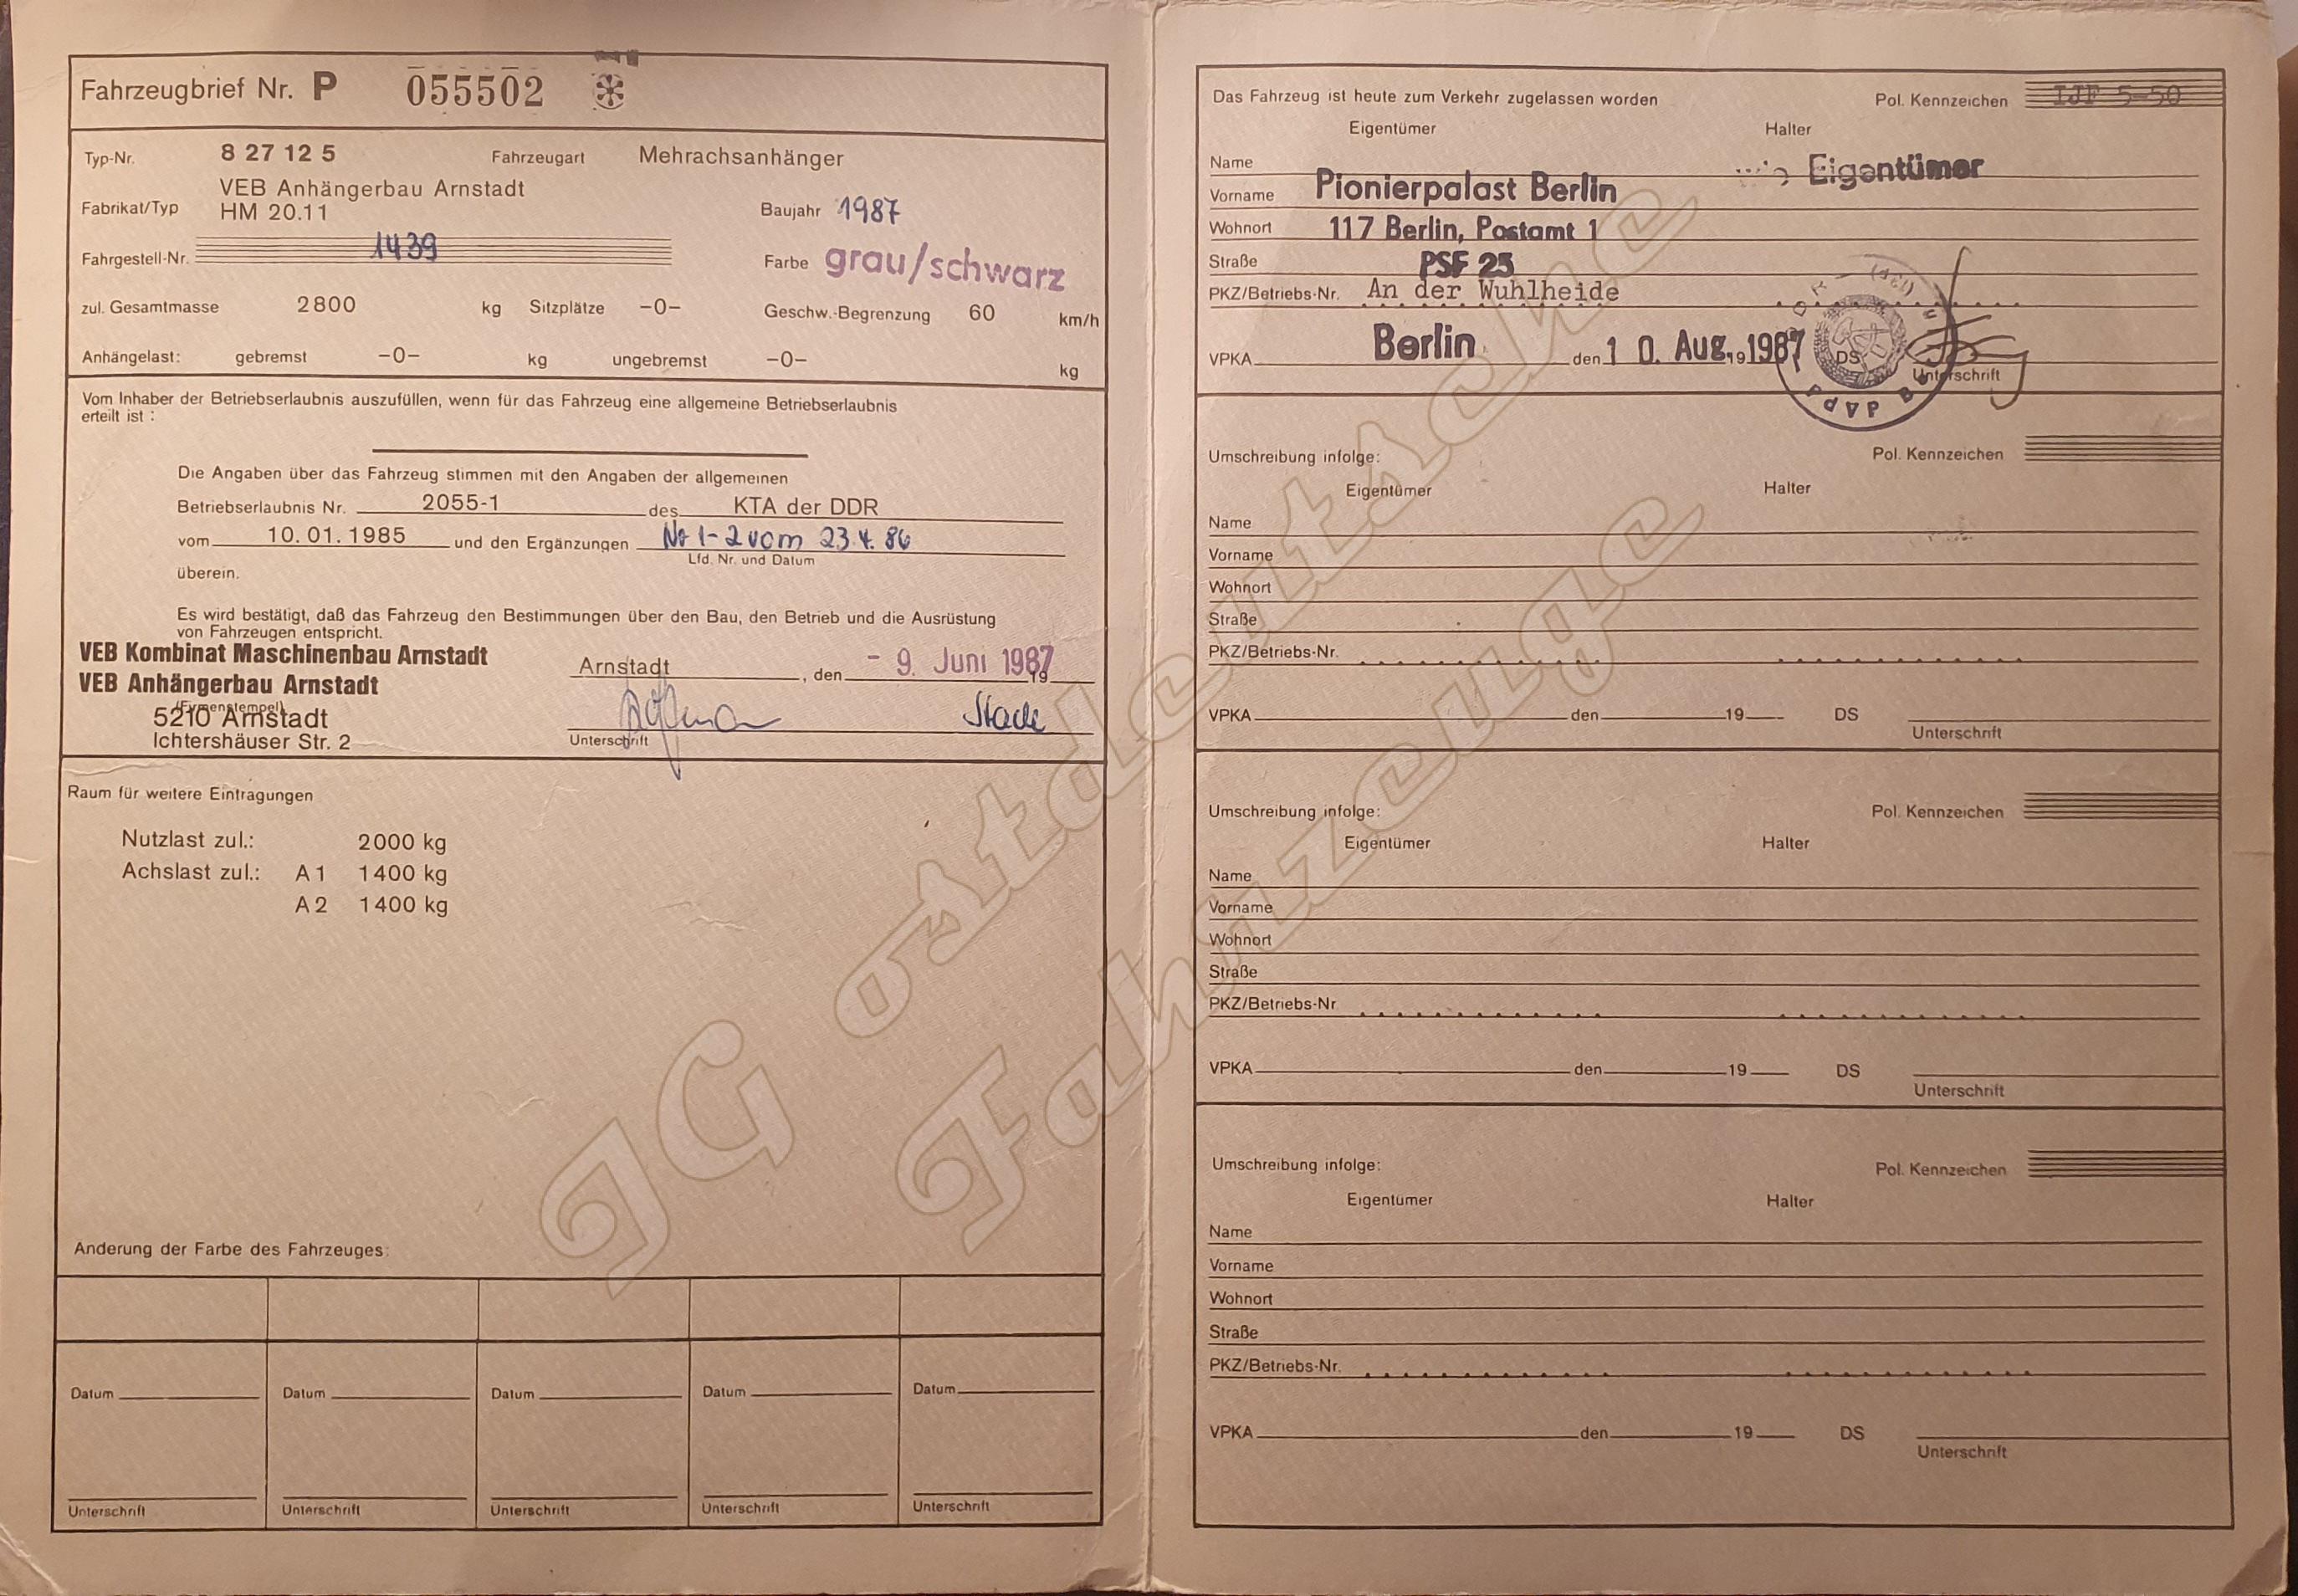 Fahrzeugbrief Nr. P 055502
Typ-Nr. 8 27 12 5 Fahrzeugart Mehrachsanhänger
Fabrikat/Typ VEB Anhängerbau Arnstadt
HM 20.11 Baujahr 1987
Fahrgestell-Nr. 1439 Farbe grau/schwarz
zul. Gesamtmasse 2800 kg Sitzplätze -0- Geschw.-Begrenzung 60 km/h
Anhängelast: gebremst -0- kg ungebremst -0- kg
Vom Inhaber der Betriebserlaubnis auszufüllen, wenn für das Fahrzeug eine allgemeine Betriebserlaubnis
erteilt ist :
Die Angaben über das Fahrzeug stimmen mit den Angaben der allgemeinen
Betriebserlaubnis Nr. 2055-1 des KTA der DDR
vom 10. 01. 1985 und den Ergänzungen Nr 1-2 vom 23.4. 86
Lfd. Nr. und Datum
überein.
Es wird bestätigt, daß das Fahrzeug den Bestimmungen über den Bau, den Betrieb und die Ausrüstung
von Fahrzeugen entspricht.
VEB Kombinat Maschinenbau Arnstadt
VEB Anhängerbau Arnstadt
(Firmenstempel)
5210 Arnstadt
Ichtershäuser Str. 2
Arnstadt , den - 9. Juni 1987 19
Unterschrift
Raum für weitere Eintragungen
Nutzlast zul.: 2000 kg
Achslast zul.: A 1 1400 kg
A 2 1400 kg
Änderung der Farbe des Fahrzeuges:
Datum Datum Datum Datum Datum
Unterschrift Unterschrift Unterschrift Unterschrift Unterschrift
Das Fahrzeug ist heute zum Verkehr zugelassen worden Pol. Kennzeichen IJF 5-50
Eigentümer Halter
Name
Vorname Pionierpalast Berlin Eigentümer
Wohnort 117 Berlin, Postamt 1
Straße PSF 25
PKZ/Betriebs-Nr. An der Wuhlheide
VPKA Berlin den 10. Aug. 19 1987 DS
Unterschrift
Umschreibung infolge: Pol. Kennzeichen
Eigentümer Halter
Name
Vorname
Wohnort
Straße
PKZ/Betriebs-Nr.
VPKA den 19 DS
Unterschrift
Umschreibung infolge: Pol. Kennzeichen
Eigentümer Halter
Name
Vorname
Wohnort
Straße
PKZ/Betriebs-Nr.
VPKA den 19 DS
Unterschrift
Umschreibung infolge: Pol. Kennzeichen
Eigentümer Halter
Name
Vorname
Wohnort
Straße
PKZ/Betriebs-Nr.
VPKA den 19 DS
Unterschrift
IG ostdeutsche
Fahrzeuge